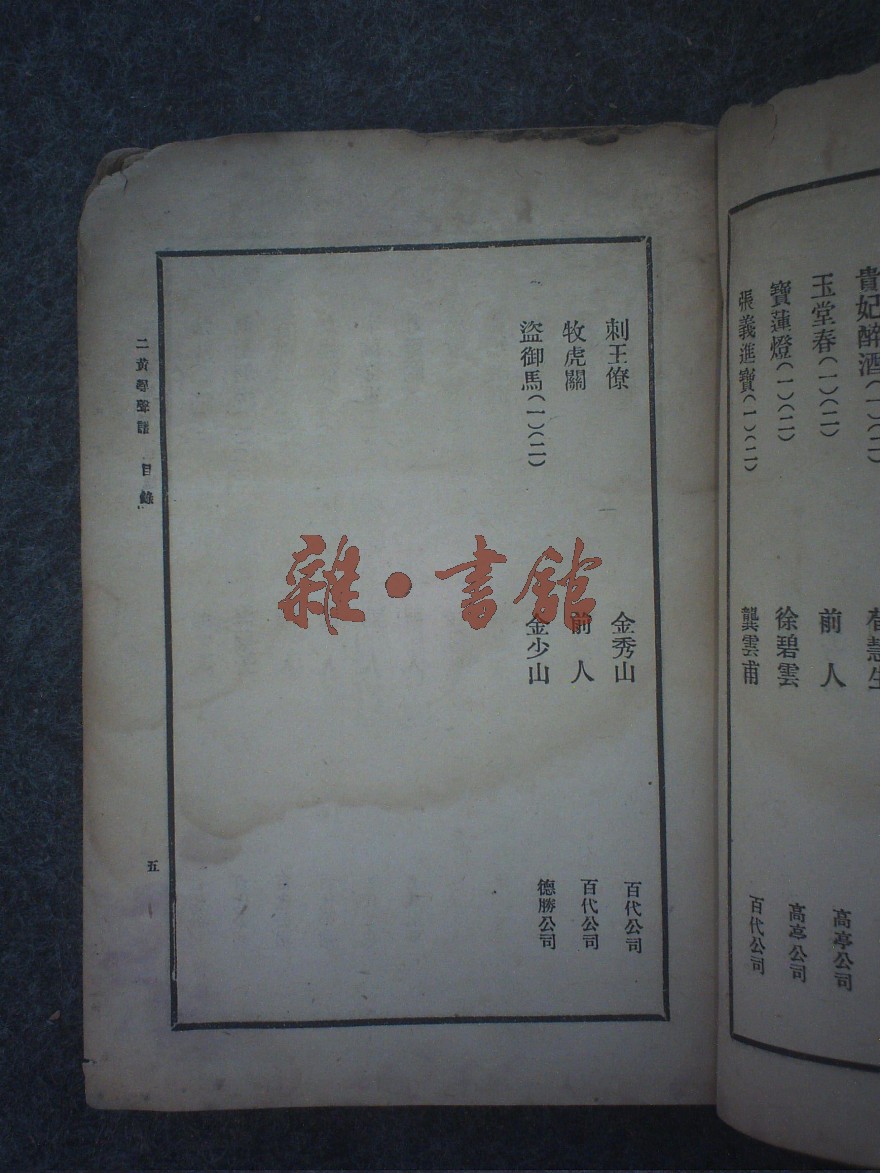 貴妃醉酒(一)(二)
玉堂春(一)(二) 前人 高亭公司
寶蓮燈(一)(二) 徐碧雲 高亭公司
張義進寶(一)(二) 龔雲甫 百代公司
刺王僚 金秀山 百代公司
牧虎關 前人 百代公司
盜御馬(一)(二) 金少山 德勝公司
二黃尋聲譜 目錄
五
雜·書館